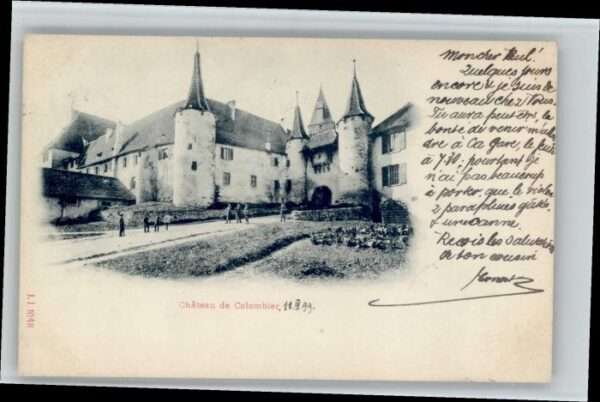 Mon cher Paul!
Quelques jours
encore et je suis de
nouveau chez Vous.
Tu auras peut être, la
bonté de venir m'atten
dre à la gare, le
à 7.30; pourtant je
n'ai pas beaucoup
à porter, que le violon
2 parapluies
& une canne.
Reçois les salutations
de ton cousin
Château de Colombier, 11.
99.
J. J. 1048